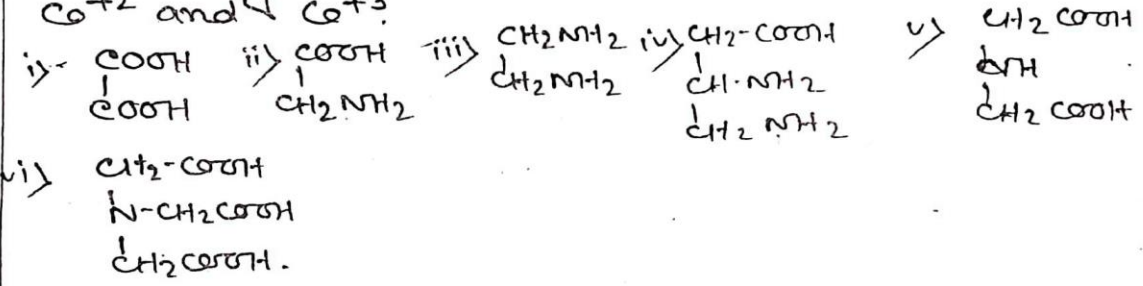 Co+2 and Co+3?
i) COOH
COOH
ii) COOH
CH2 NH2
iii) CH2NH2
CH2NH2
iv) CH2-COOH
CH.NH2
CH2 NH2
v) CH2 COOH
NH
CH2 COOH
vi) CH2-COOH
N-CH2COOH
CH2COOH.